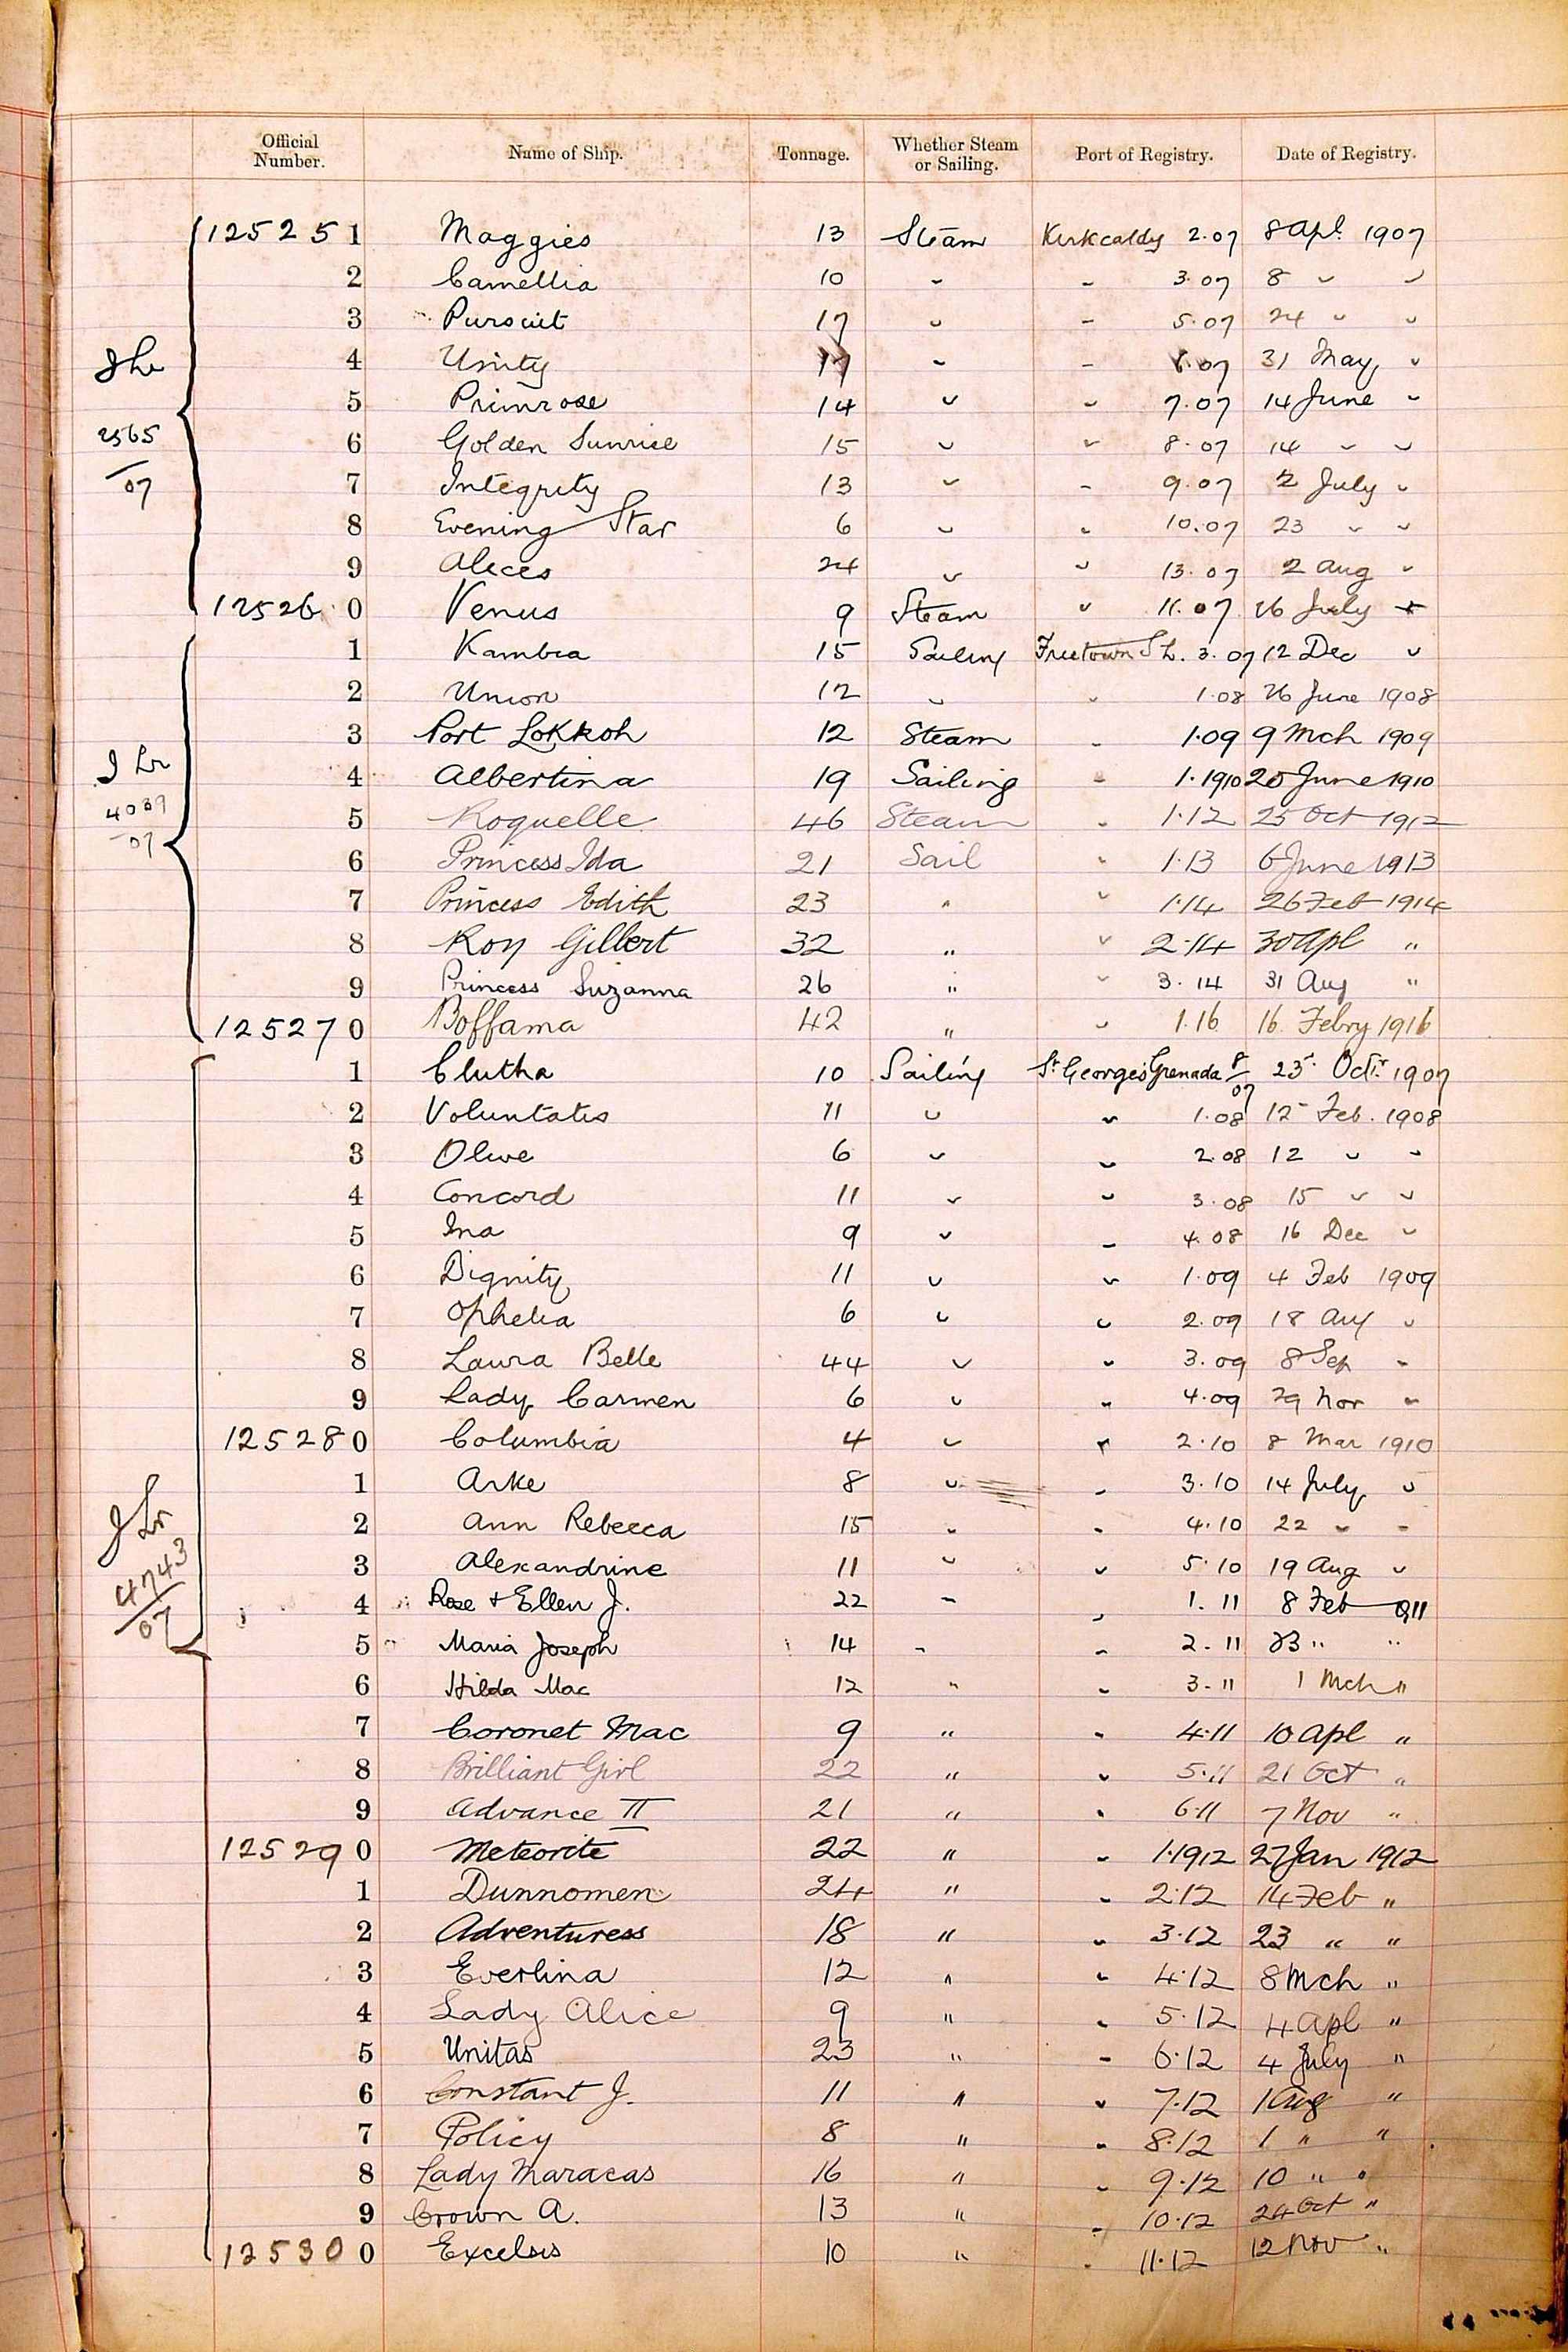 Official Number. Name of Ship. Tonnage. Whether Steam or Sailing. Port of Registry. Date of Registry.
125251 Maggies 13 Steam Kirkcaldy 2.07 8 Apl. 1907
2 Camellia 10 " " 3.07 8 " "
3 Pursuit 17 " " 5.07 24 " "
4 Unity 17 " " 6.07 31 May "
5 Primrose 14 " " 7.07 14 June "
6 Golden Sunrise 15 " " 8.07 14 " "
2565
7 Integrity 13 " " 9.07 2 July "
/07
8 Evening Star 6 " " 10.07 23 " "
9 Alices 24 " " 13.07 2 Aug "
125260 Venus 9 Steam " 11.07 26 July "
1 Kambia 15 Sailing Freetown S L. 3.07 12 Dec "
2 Union 12 " " 1.08 26 June 1908
3 Port Lokkoh 12 Steam " 1.09 9 Mch 1909
4 Albertina 19 Sailing " 1.1910 20 June 1910
4039
5 Roquelle 46 Steam " 1.12 25 Oct 1912
/07
6 Princess Ida 21 Sail " 1.13 6 June 1913
7 Princess Edith 23 " " 1.14 26 Feb 1914
8 Roy Gilbert 32 " " 2.14 30 Apl "
9 Princess Suzanna 26 " " 3.14 31 Aug "
125270 Boffama 42 " " 1.16 16 Febry 1916
1 Clutha 10 Sailing St. Georges Grenada 8/07 23 Octr. 1907
2 Voluntatis 11 " " 1.08 12 Feb. 1908
3 Olive 6 " " 2.08 12 " "
4 Concord 11 " " 3.08 15 " "
5 Ina 9 " " 4.08 16 Dec "
6 Dignity 11 " " 1.09 4 Feb 1909
7 Ophelia 6 " " 2.09 18 Aug "
8 Laura Belle 44 " " 3.09 8 Sep "
9 Lady Carmen 6 " " 4.09 29 Nov "
125280 Columbia 4 " " 2.10 8 Mar 1910
1 Arke 8 " " 3.10 14 July "
2 Ann Rebecca 15 " " 4.10 22 " "
4743
3 Alexandrine 11 " " 5.10 19 Aug "
/07
4 Rose + Ellen J. 22 " " 1.11 8 Feb 911
5 Maria Joseph 14 " " 2.11 23 " "
6 Hilda Mac 12 " " 3.11 1 Mch "
7 Coronet Mac 9 " " 4.11 10 Apl "
8 Brilliant Girl 22 " " 5.11 21 Oct "
9 Advance II 21 " " 6.11 7 Nov "
125290 Meteorite 22 " " 1.1912 27 Jan 1912
1 Dunnomen 24 " " 2.12 14 Feb "
2 Adventuress 18 " " 3.12 23 " "
3 Everlina 12 " " 4.12 8 Mch "
4 Lady Alice 9 " " 5.12 4 Apl "
5 Unitas 23 " " 6.12 4 July "
6 Constant J. 11 " " 7.12 1 Aug "
7 Policy 8 " " 8.12 1 " "
8 Lady Maracas 16 " " 9.12 10 " "
9 Crown A. 13 " " 10.12 24 Oct "
125300 Excelsis 10 " " 11.12 12 Nov "